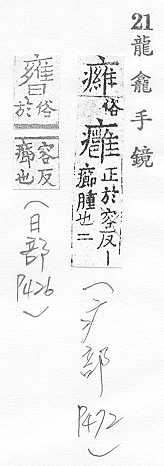 21 龍龕手鏡
俗癰正於容反丨癤腫也二
(疒部 P472)
俗於容反癤也
(日部 P426)